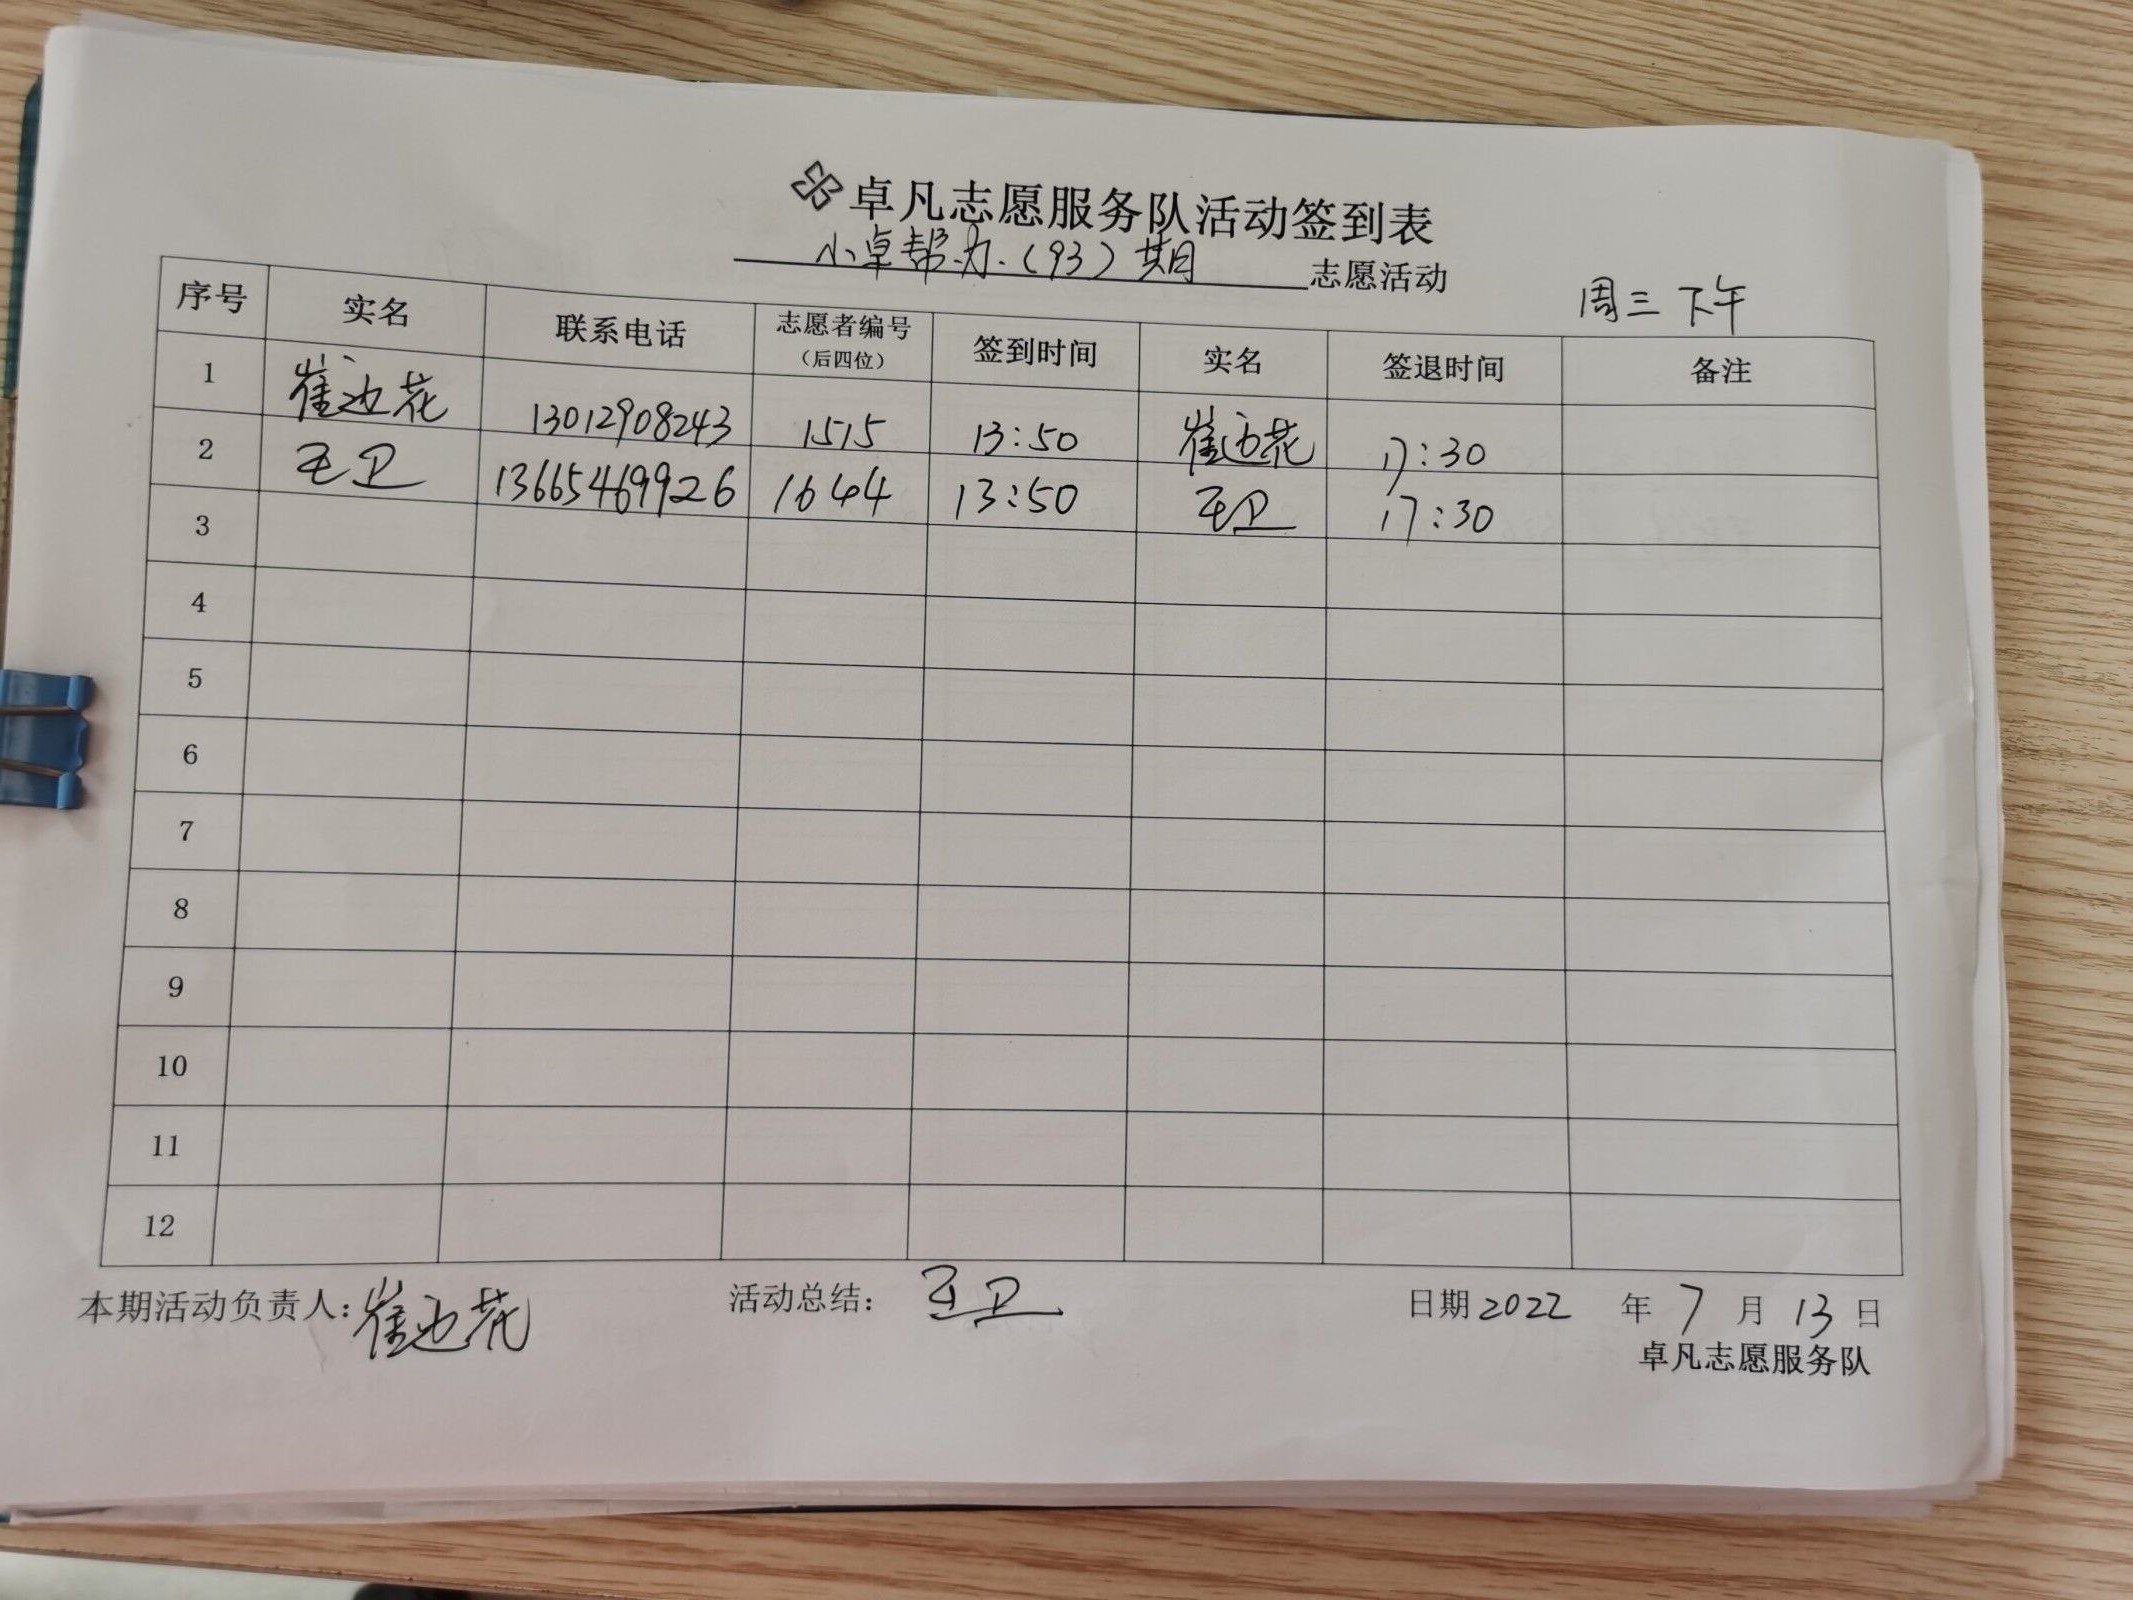 卓凡志愿服务队活动签到表
小卓帮办（93）期 志愿活动
周三下午
序号 实名 联系电话 志愿者编号（后四位） 签到时间 实名 签退时间 备注
1 崔迎花 13012908243 1515 13:50 崔迎花 17:30
2 王卫 13665469926 1644 13:50 王卫 17:30
3
4
5
6
7
8
9
10
11
12
本期活动负责人：崔迎花 活动总结：王卫 日期2022年7月13日
卓凡志愿服务队